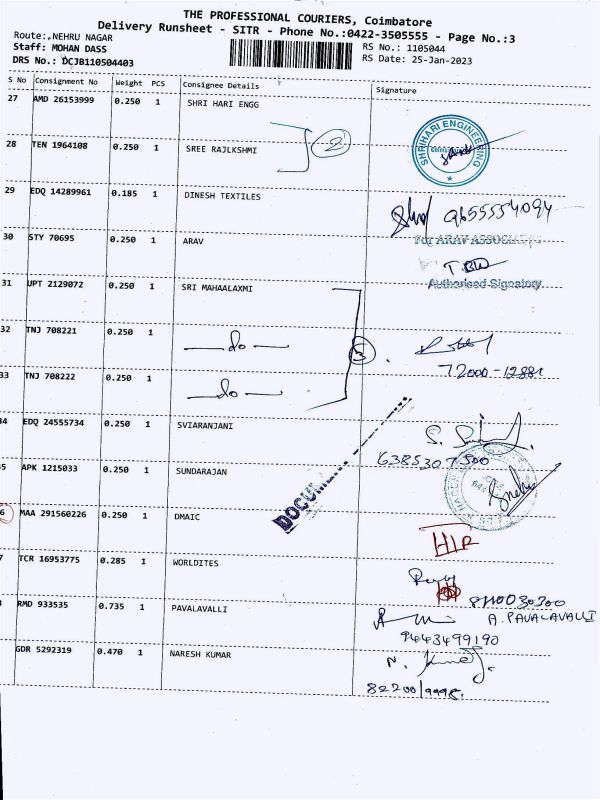 THE PROFESSIONAL COURIERS, Coimbatore
Delivery Runsheet - SITR - Phone No.:0422-3505555 - Page No.:3
Route:.NEHRU NAGAR
RS No.: 1105044
Staff: MOHAN DASS
RS Date: 25-Jan-2023
DRS No.: DCJB110504403
S No Consignment No Weight PCS Consignee Details Signature
27 AMD 26153999 0.250 1 SHRI HARI ENGG
SHRIHARI ENGINEERING
28 TEN 1964108 0.250 1 SREE RAJLKSHMI
2
29 EDQ 14289961 0.185 1 DINESH TEXTILES
9655554094
30 STY 70695 0.250 1 ARAV
For ARAV ASSOCI
Authorised Signatory
31 UPT 2129072 0.250 1 SRI MAHAALAXMI
32 TNJ 708221 0.250 1 do
3
33 TNJ 708222 0.250 1 do
72000-12881
34 EDQ 24555734 0.250 1 SVIARANJANI
6385307500
35 APK 1215033 0.250 1 SUNDARAJAN
DOCUM
6 MAA 291560226 0.250 1 DMAIC
H/R
7 TCR 16953775 0.285 1 WORLDITES
8110030300
RMD 933535 0.735 1 PAVALAVALLI
A. PAVALAVALLI
9443499190
GDR 5292319 0.470 1 NARESH KUMAR